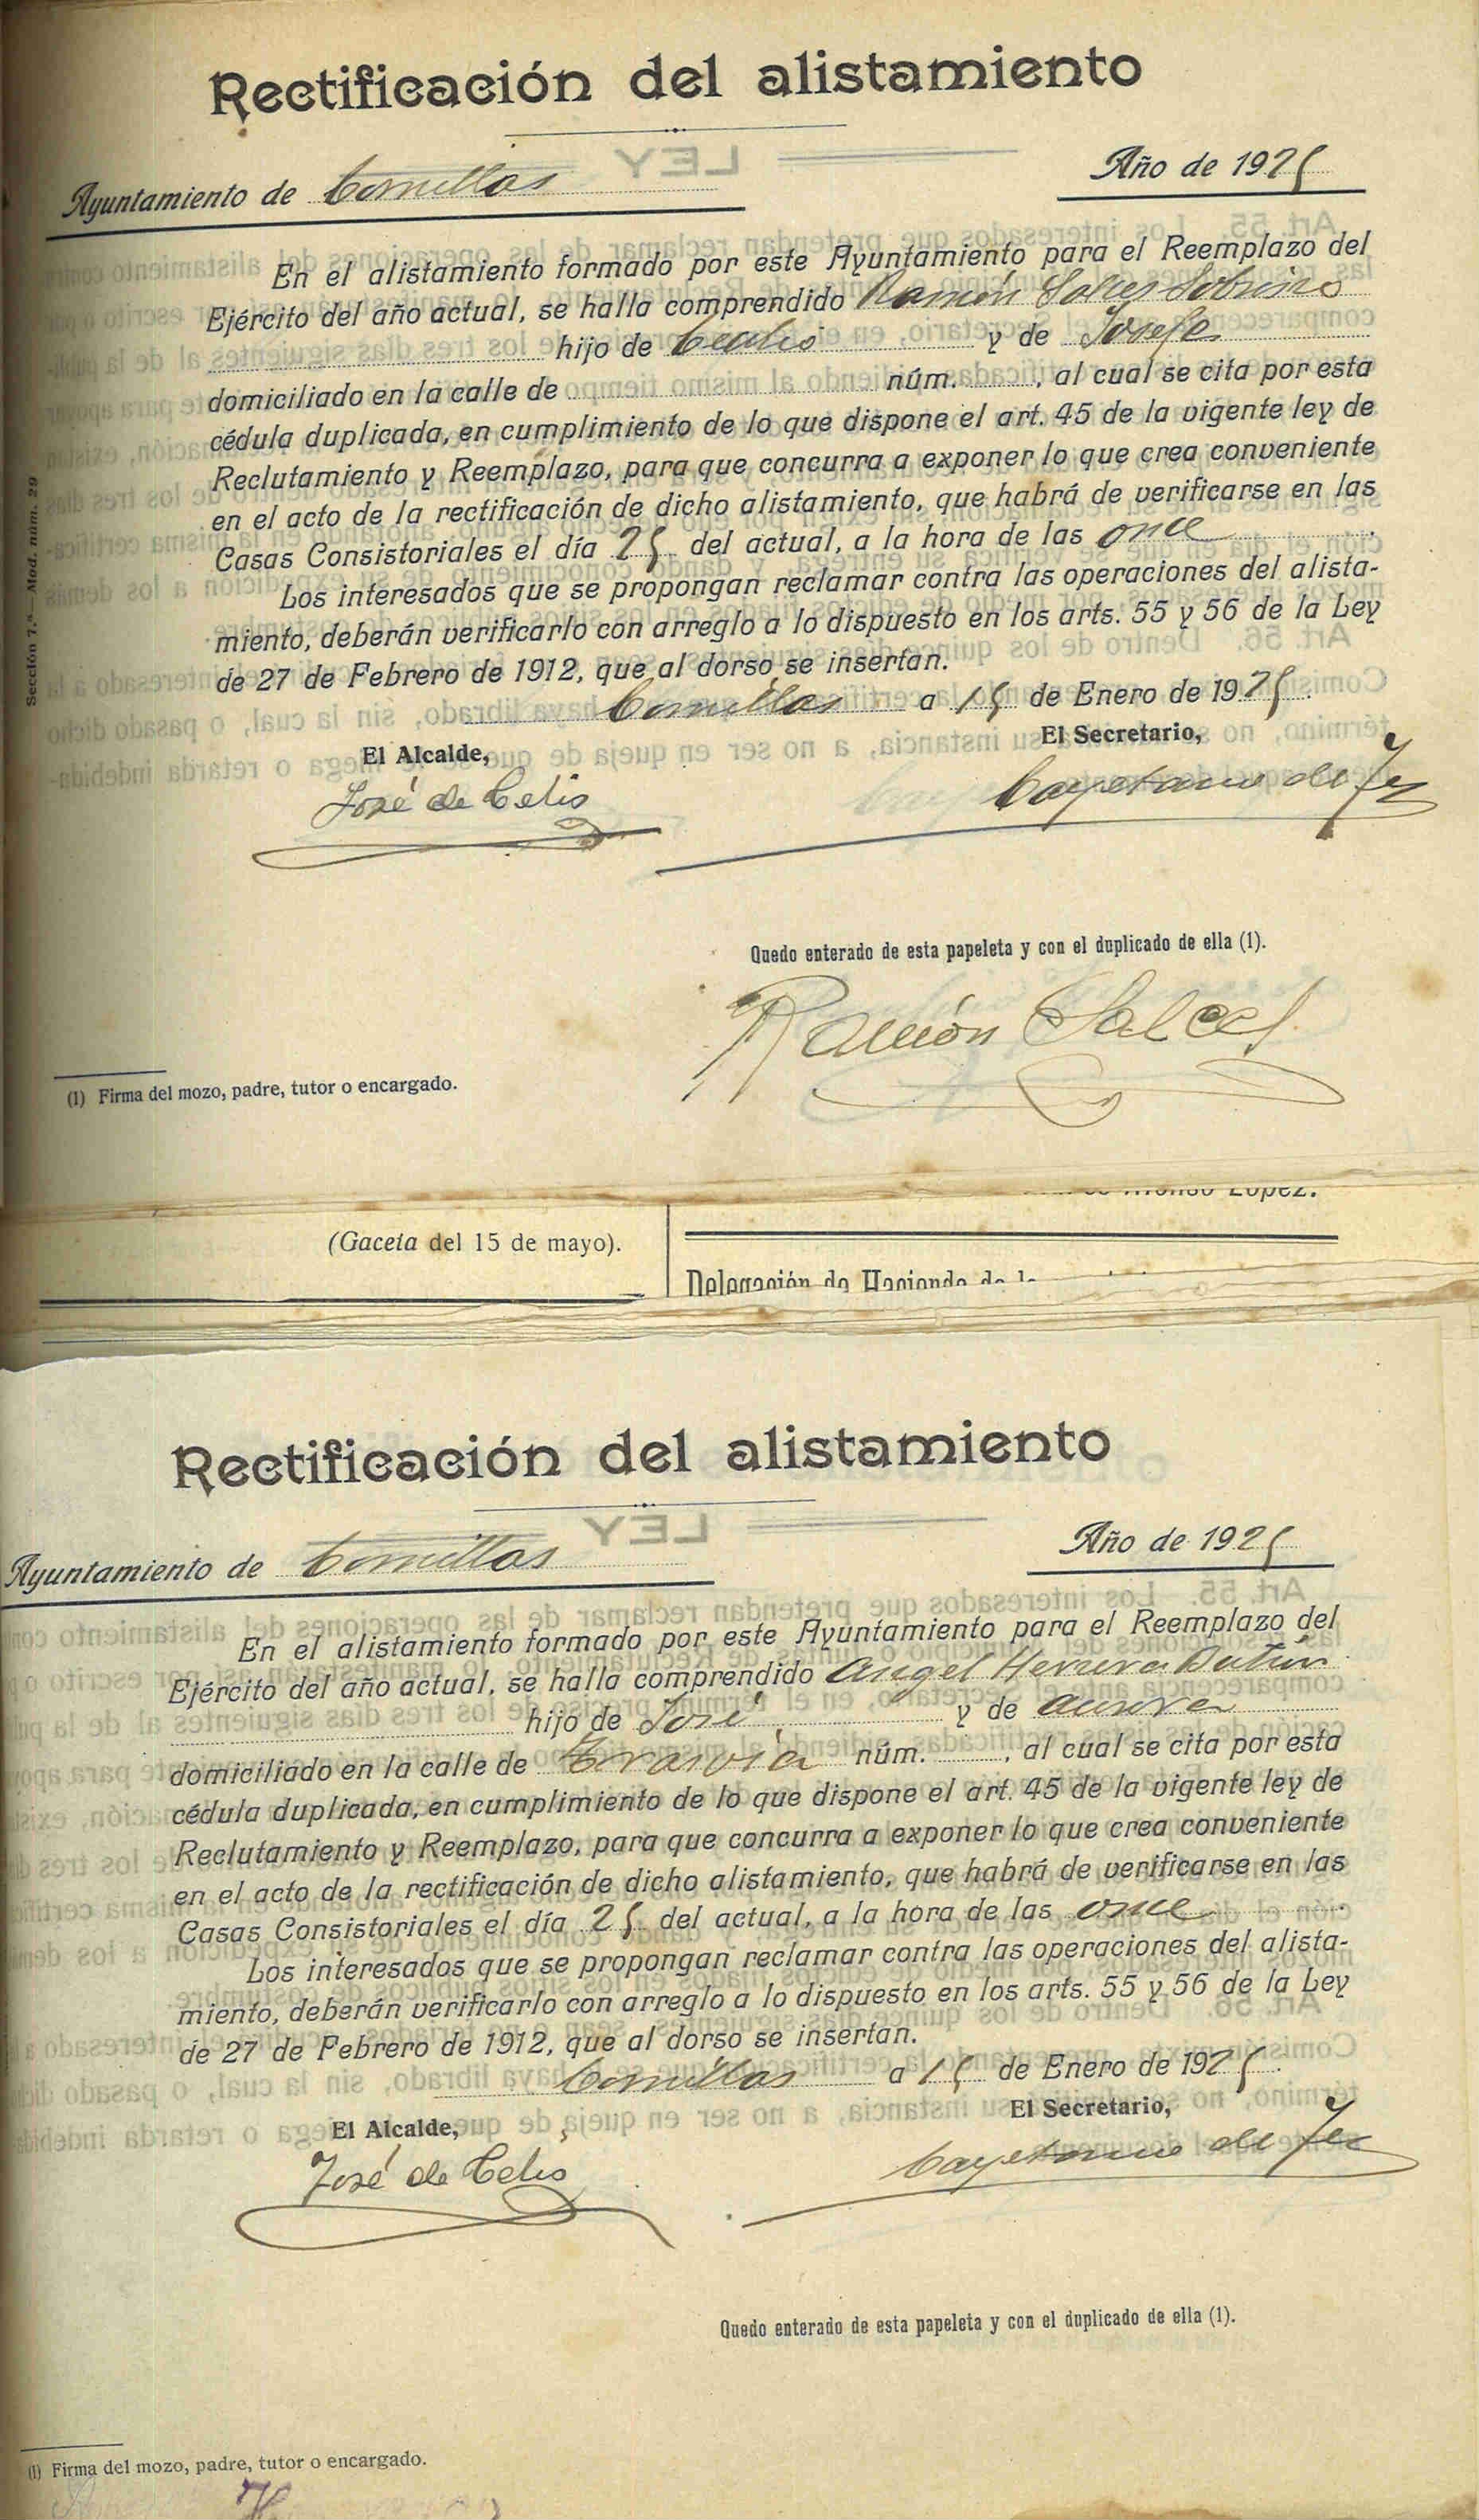 Rectificación del alistamiento
LEY
Ayuntamiento de Comillas
Año de 1925
En el alistamiento formado por este Ayuntamiento para el Reemplazo del
Ejército del año actual, se halla comprendido Ramón Salces Sobrino
hijo de y de Josefa
domiciliado en la calle de núm. , al cual se cita por esta
cédula duplicada, en cumplimiento de lo que dispone el art. 45 de la vigente ley de
Reclutamiento y Reemplazo, para que concurra a exponer lo que crea conveniente
en el acto de la rectificación de dicho alistamiento, que habrá de verificarse en las
Casas Consistoriales el día 25 del actual, a la hora de las once
Los interesados que se propongan reclamar contra las operaciones del alista-
miento, deberán verificarlo con arreglo a lo dispuesto en los arts. 55 y 56 de la Ley
de 27 de Febrero de 1912, que al dorso se insertan.
Comillas a 15 de Enero de 1925.
El Alcalde,
El Secretario,
José de Celis
Cayetano de
Quedo enterado de esta papeleta y con el duplicado de ella (1).
Ramón Salces
(1) Firma del mozo, padre, tutor o encargado.
Sección 7.ª—Mod. núm. 29
López.
(Gaceta del 15 de mayo).
Delegación de Hacienda de
Rectificación del alistamiento
LEY
Ayuntamiento de Comillas
Año de 1925
En el alistamiento formado por este Ayuntamiento para el Reemplazo del
Ejército del año actual, se halla comprendido Angel Herrera
hijo de José y de Aurora
domiciliado en la calle de núm. , al cual se cita por esta
cédula duplicada, en cumplimiento de lo que dispone el art. 45 de la vigente ley de
Reclutamiento y Reemplazo, para que concurra a exponer lo que crea conveniente
en el acto de la rectificación de dicho alistamiento, que habrá de verificarse en las
Casas Consistoriales el día 25 del actual, a la hora de las once
Los interesados que se propongan reclamar contra las operaciones del alista-
miento, deberán verificarlo con arreglo a lo dispuesto en los arts. 55 y 56 de la Ley
de 27 de Febrero de 1912, que al dorso se insertan.
Comillas a 15 de Enero de 1925.
El Alcalde,
El Secretario,
José de Celis
Cayetano de
Quedo enterado de esta papeleta y con el duplicado de ella (1).
(1) Firma del mozo, padre, tutor o encargado.